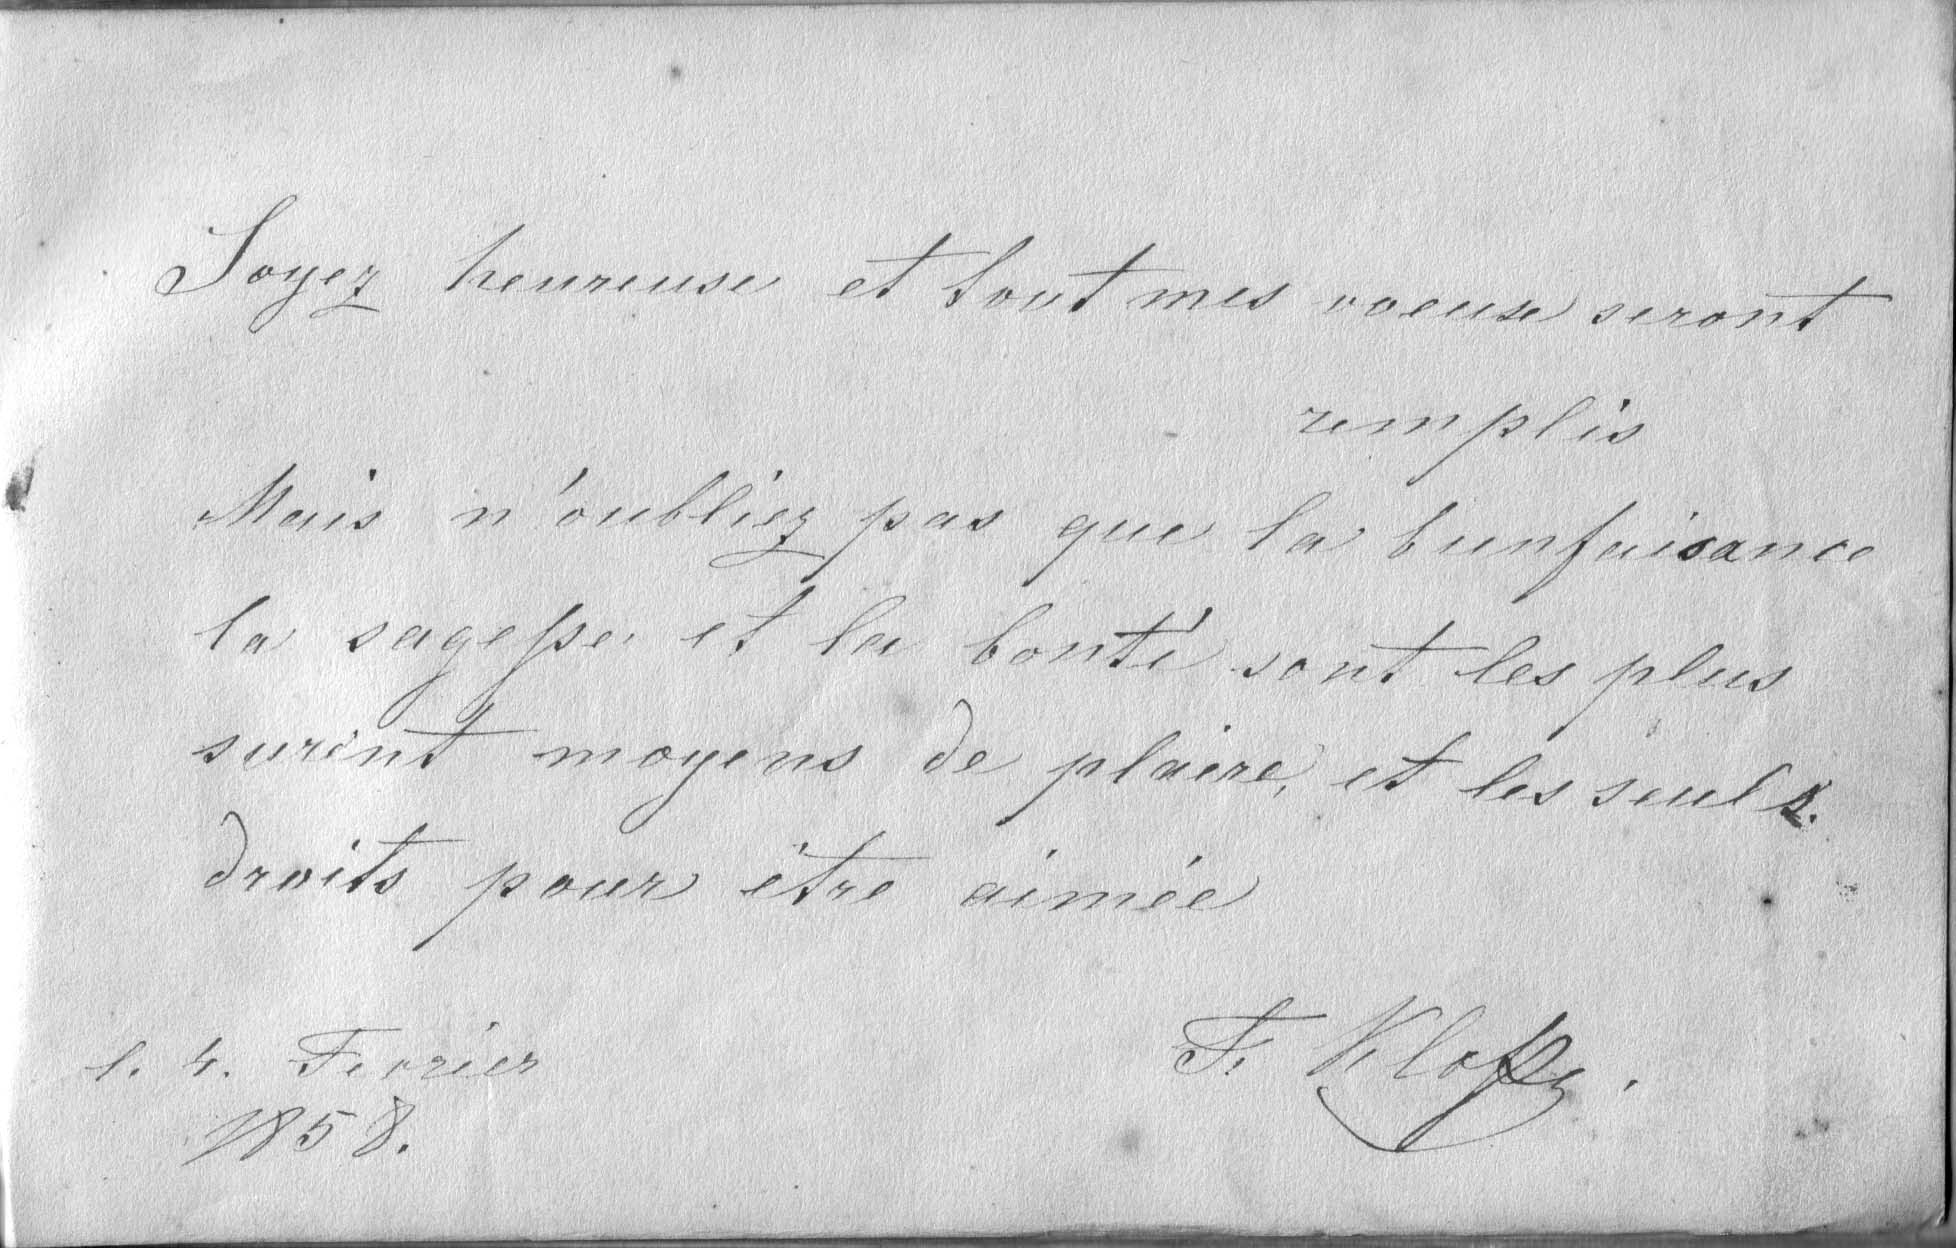 Soyez heureuse et tout mes voeuxe seront
remplis
Mais n'oubliez pas que la bunfaisance
la sagesse et la bonté sont les plus
surent moyens de plaire, et les seuls.
droits pour être aimée
l. 4. Fevrier
1858.
F.